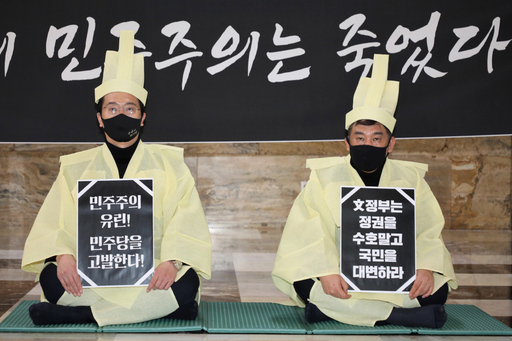 민주주의는 죽었다
민주주의
유린!
민주당을
고발한다!
文정부는
정권을
수호말고
국민을
대변하라